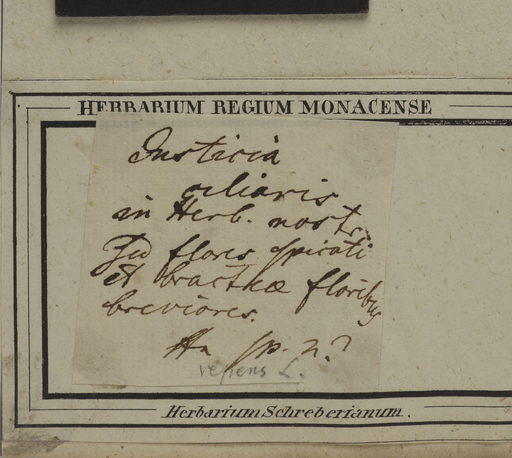 HERBARIUM REGIUM MONACENSE
Justicia
ciliaris
in Herb. nostr.
Sed flores spicati
et bracteae floribus
breviores.
An sp. n.?
repens L.
Herbarium Schreberianum.